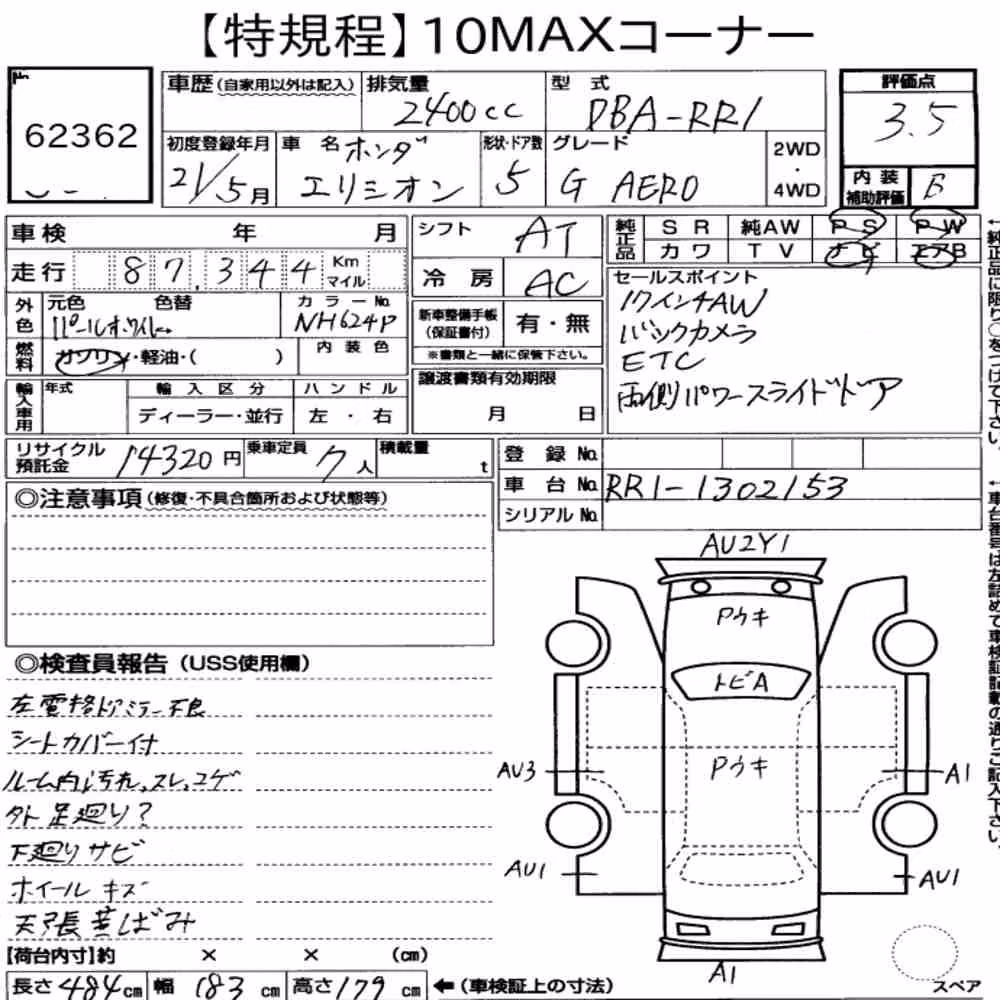 【特規程】10MAXコーナー
No.
62362
車歴(自家用以外は記入)
排気量
2400cc
型式
DBA-RR1
評価点
3.5
初度登録年月
21/5月
車名
ホンダ
エリシオン
形状・ドア数
5
グレード
G AERO
2WD
・
4WD
内装
補助評価
B
車検 年 月
シフト
AT
純正品
SR 純AW PS PW
カワ TV ナビ エアB
走行 87,344 Km
マイル
冷房
AC
セールスポイント
17インチAW
バックカメラ
ETC
両側パワースライドドア
外色
元色 色替
パールホワイト
カラーNo.
NH624P
新車整備手帳
(保証書付)
有・無
※書類と一緒に保管下さい。
燃料
ガソリン・軽油・( )
内装色
輸入車用
年式
輸入区分
ディーラー・並行
ハンドル
左・右
譲渡書類有効期限
月 日
リサイクル
預託金
14320円
乗車定員
7人
積載量
t
登録No.
車台No.
RR1-1302153
シリアルNo.
◎注意事項(修復・不具合箇所および状態等)
◎検査員報告(USS使用欄)
左電格ドアミラー不良
シートカバー付
ルーム内汚れ、スレ、コゲ
外ト足廻り?
下廻りサビ
ホイールキズ
天張黄ばみ
AU2Y1
Pウキ
トビA
Pウキ
AU3
A1
AU1
AU1
A1
スペア
【荷台内寸】約 × × (cm)
長さ484cm 幅183cm 高さ179cm
←(車検証上の寸法)
←純正品に限り○をつけて下さい。
←車台番号は左詰めで車検証記載の通りご記入下さい。